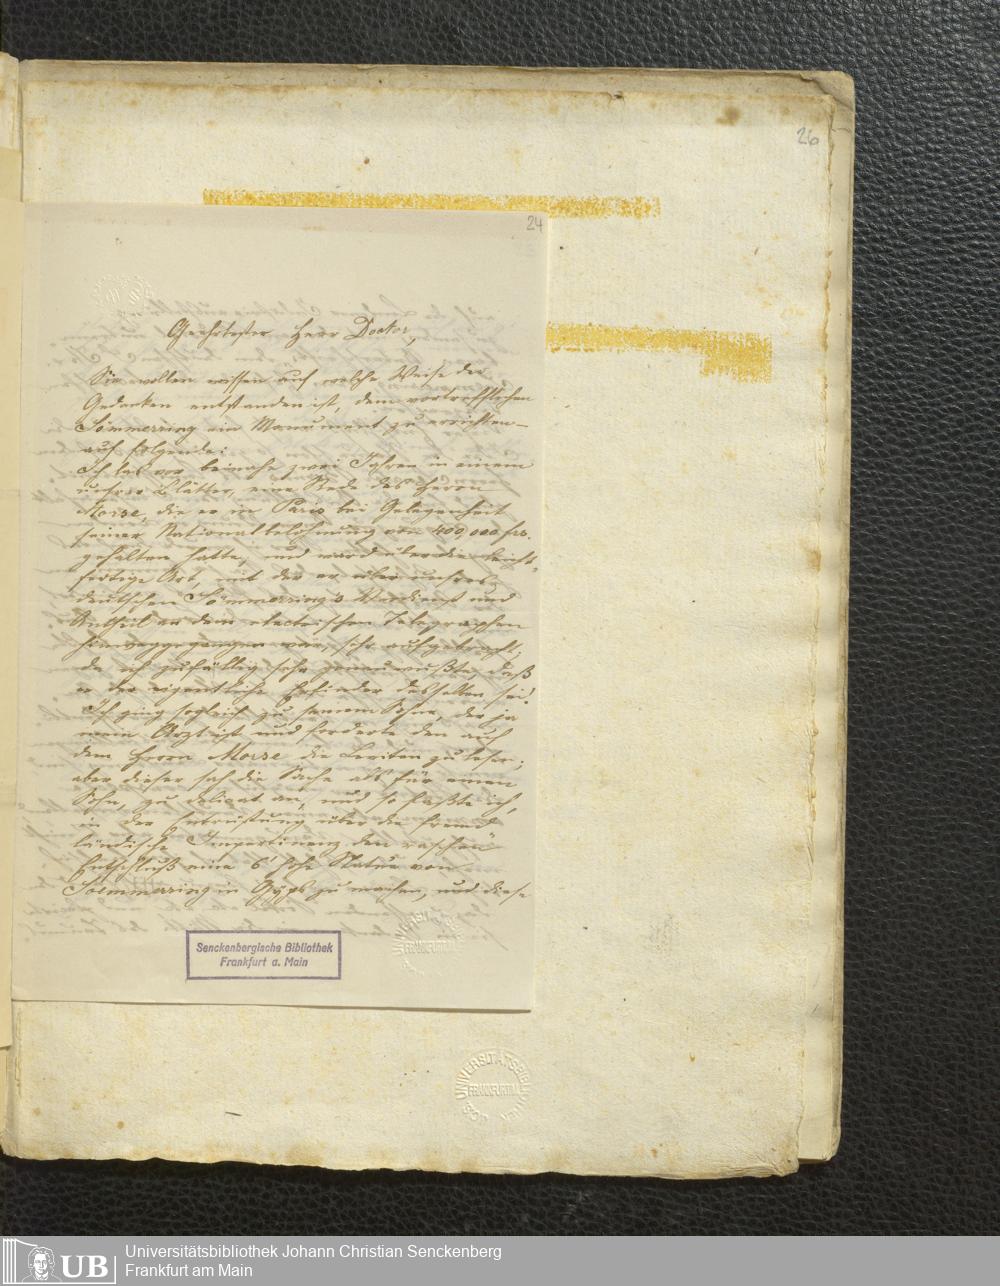 26
24
Geehrtester Herr Doctor,
Sie wollen wissen auf welche Weise der
Gedanken entstanden ist, dem vortrefflichen
Sömmerring ein Monument zu errichten –
auf folgende:
Ich las vor beinahe zwei Jahren in einem
unsrer Blätter, eine Rede des Herrn
Morse, die er in Paris bei Gelegenheit
seiner Nationalbelohnung von 400,000 frs.
gehalten hatte, und war über die leicht-
fertige Art, mit der er über unsres
deutschen Sömmerring's Verdienst und
Antheil an dem electrischen Telegraphen
hinweggegangen war, sehr aufgebracht;
da ich zufällig sehr genau wußte, daß
er der eigentliche Erfinder desselben sei!
Ich ging sogleich zu seinem Sohne, der ja
mein Arzt ist und forderte den auf
dem Herrn Morse die Leviten zu lesen;
aber dieser sah die Sache als für einen
Sohn, zu delicat an, und so faßte ich,
in der Entrüstung über die fremd
ländische Impertinenz den raschen
Entschluß eine 6' hohe Statue von
Soemmerring in Gyps zu machen, und diese
Senckenbergische Bibliothek
Frankfurt a. Main
UNIVERSITÄTSBIBLIOTHEK
FRANKFURT/M.
UB
Universitätsbibliothek Johann Christian Senckenberg
Frankfurt am Main